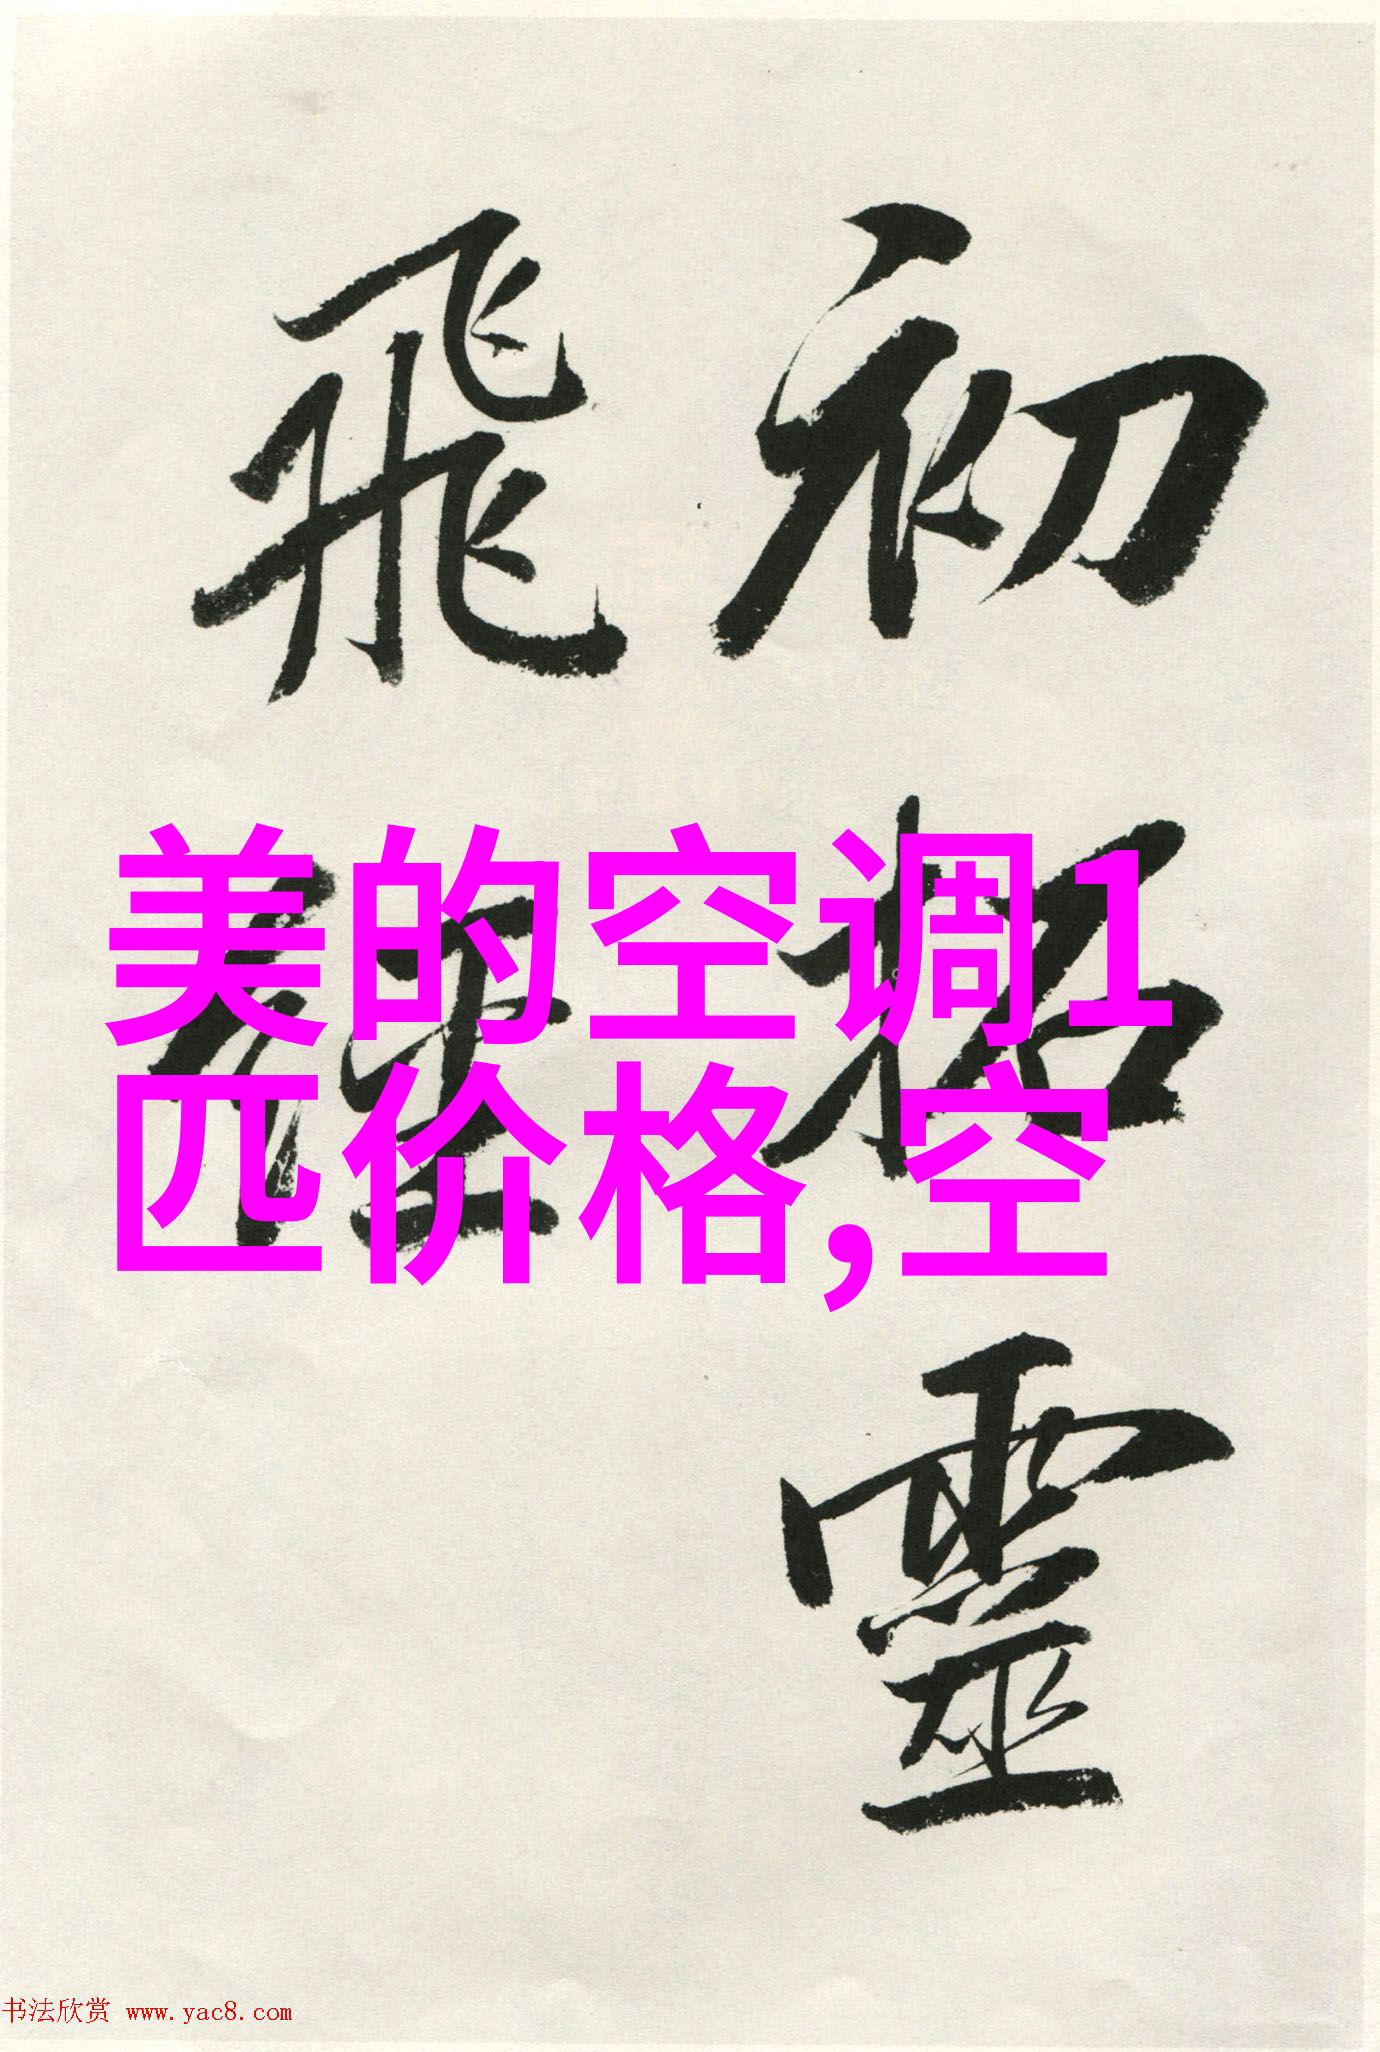 初拓靈
飛經
美的空调1
匹价格,空
书法欣赏 www.yac8.com